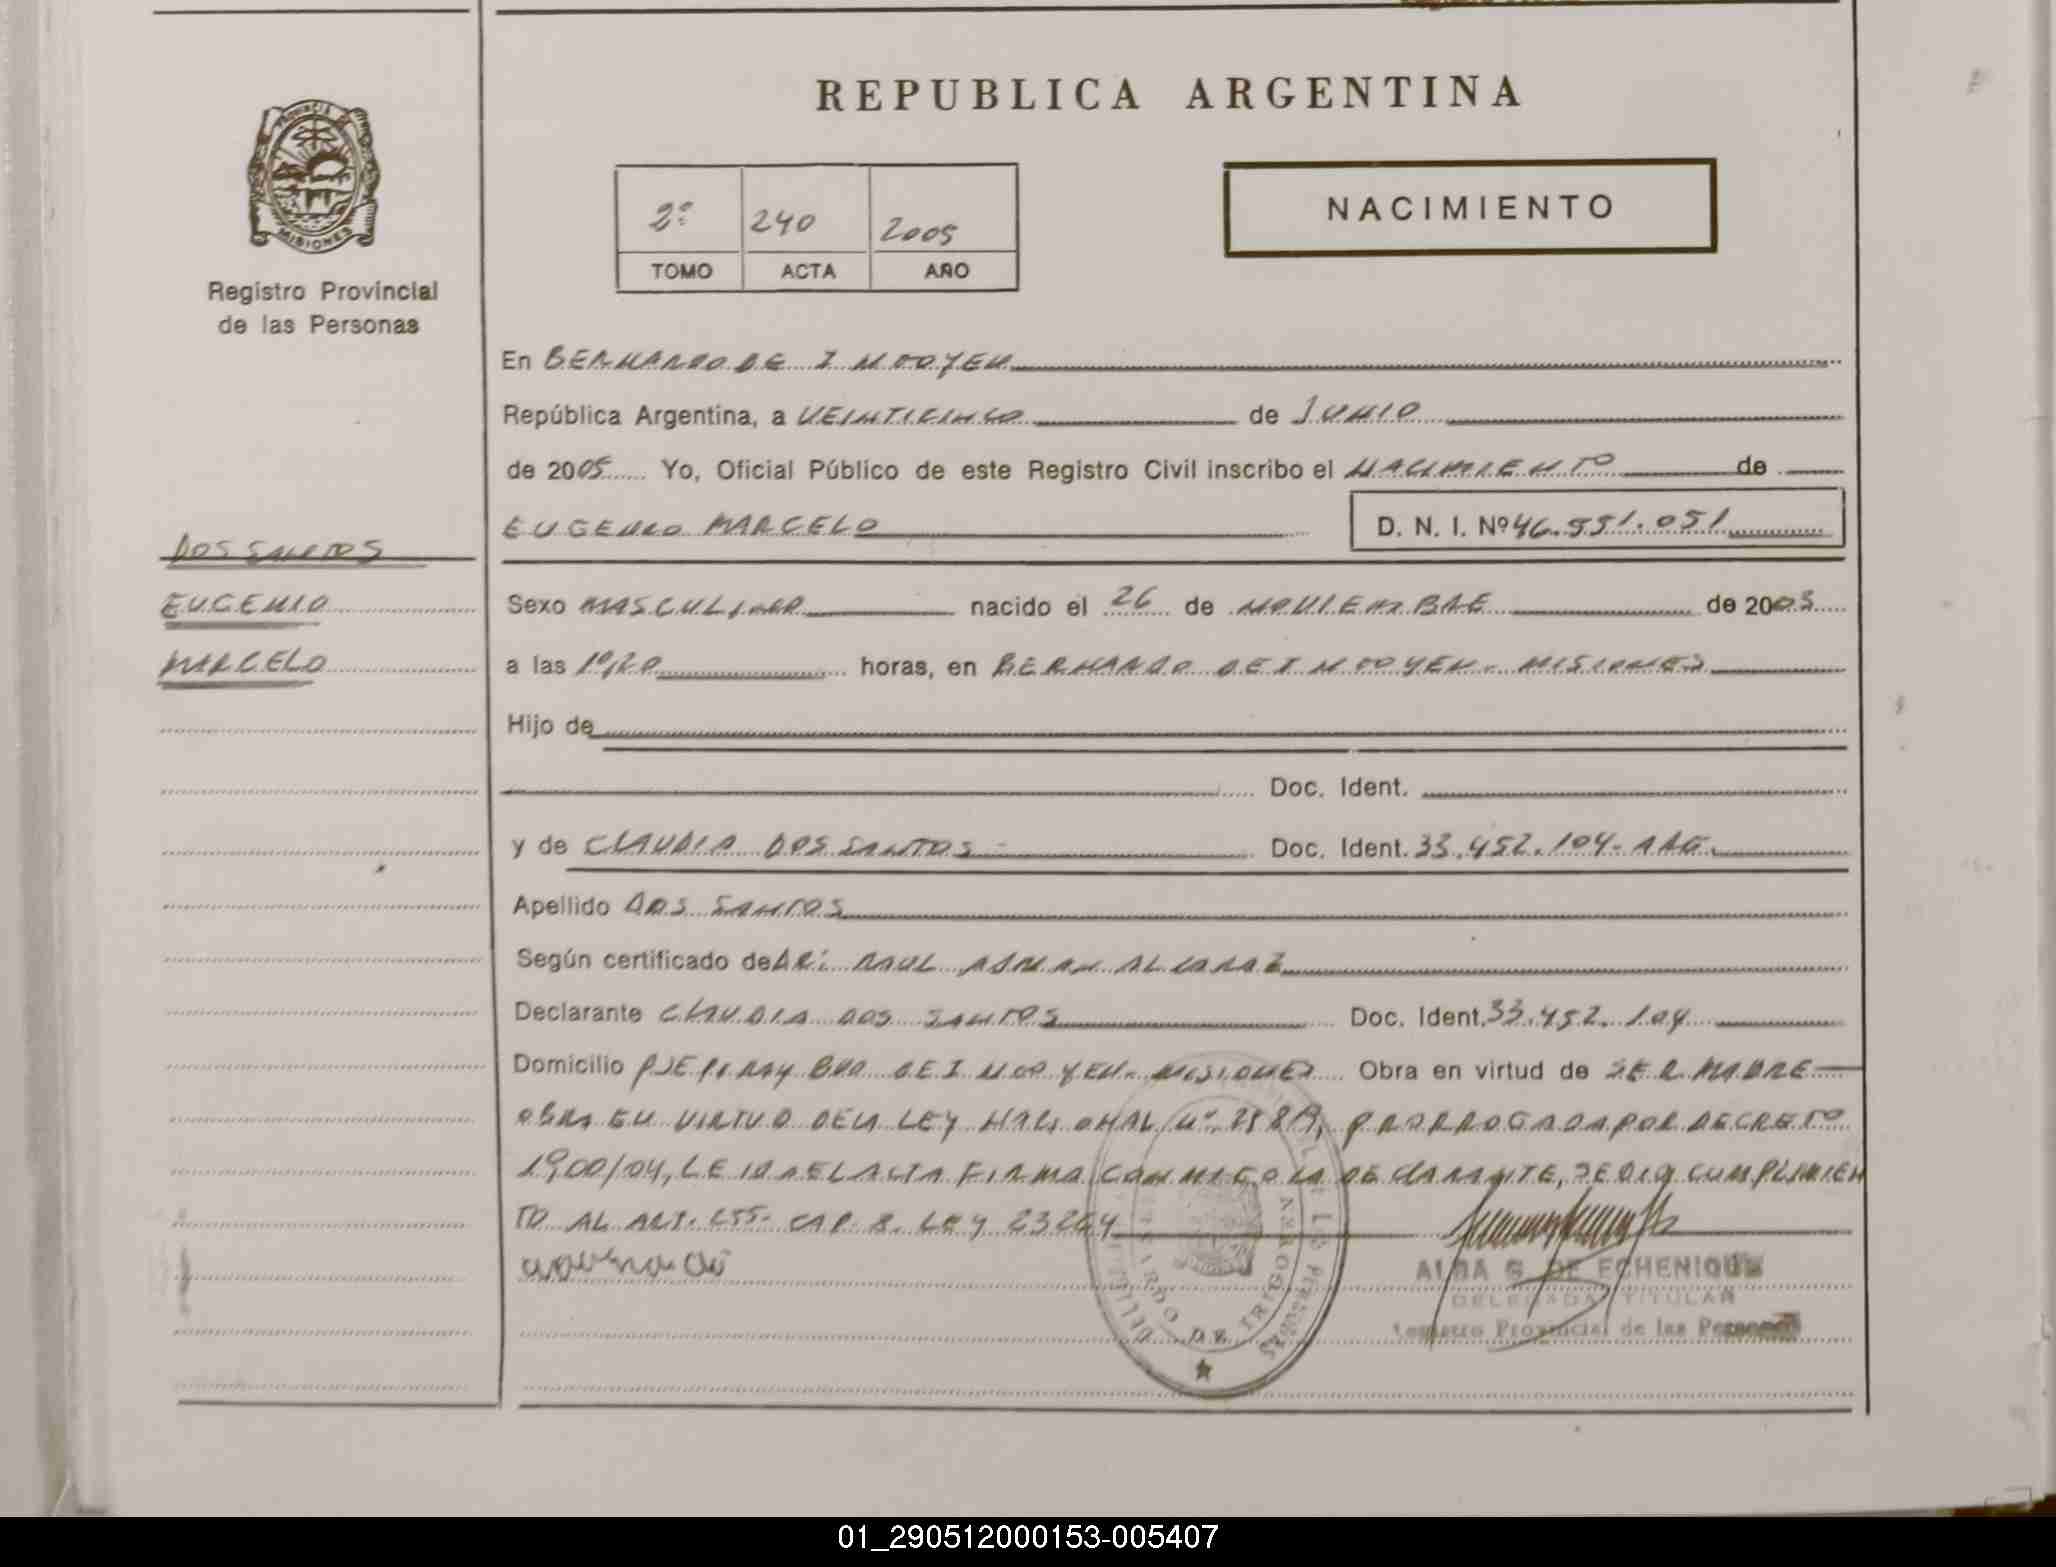 REPUBLICA ARGENTINA
PROVINCIA DE
MISIONES
Registro Provincial
de las Personas
2º 240 2005
TOMO ACTA AÑO
NACIMIENTO
En BERNARDO DE IRIGOYEN
República Argentina, a VEINTICINCO de JUNIO
de 2005 Yo, Oficial Público de este Registro Civil inscribo el NACIMIENTO de
EUGENIO MARCELO D. N. I. Nº 46.551.051
DOS SANTOS
EUGENIO
MARCELO
Sexo MASCULINO nacido el 26 de NOVIEMBRE de 2003
a las horas, en BERNARDO DE IRIGOYEN - MISIONES
Hijo de
Doc. Ident.
y de CLAUDIA DOS SANTOS - Doc. Ident. 33.452.104- ARG.
Apellido DOS SANTOS
Según certificado de DR: RAUL ALCARAZ
Declarante CLAUDIA DOS SANTOS Doc. Ident. 33.452.104
Domicilio PJE PIRAY BDO DE IRIGOYEN - MISIONES Obra en virtud de SER MADRE
OBRA EN VIRTUD DE LA LEY NACIONAL Nº 25819, PRORROGADA POR DECRETO
LEIDA EL ACTA FIRMA CONMIGO LA DECLARANTE, SE DIO CUMPLIMIEN
TO AL ART. 255- CAP. 8. LEY 23264
ALBA G. DE ECHENIQUE
DELEGADA TITULAR
Registro Provincial de las Personas
BERNARDO DE IRIGOYEN
01_290512000153-005407